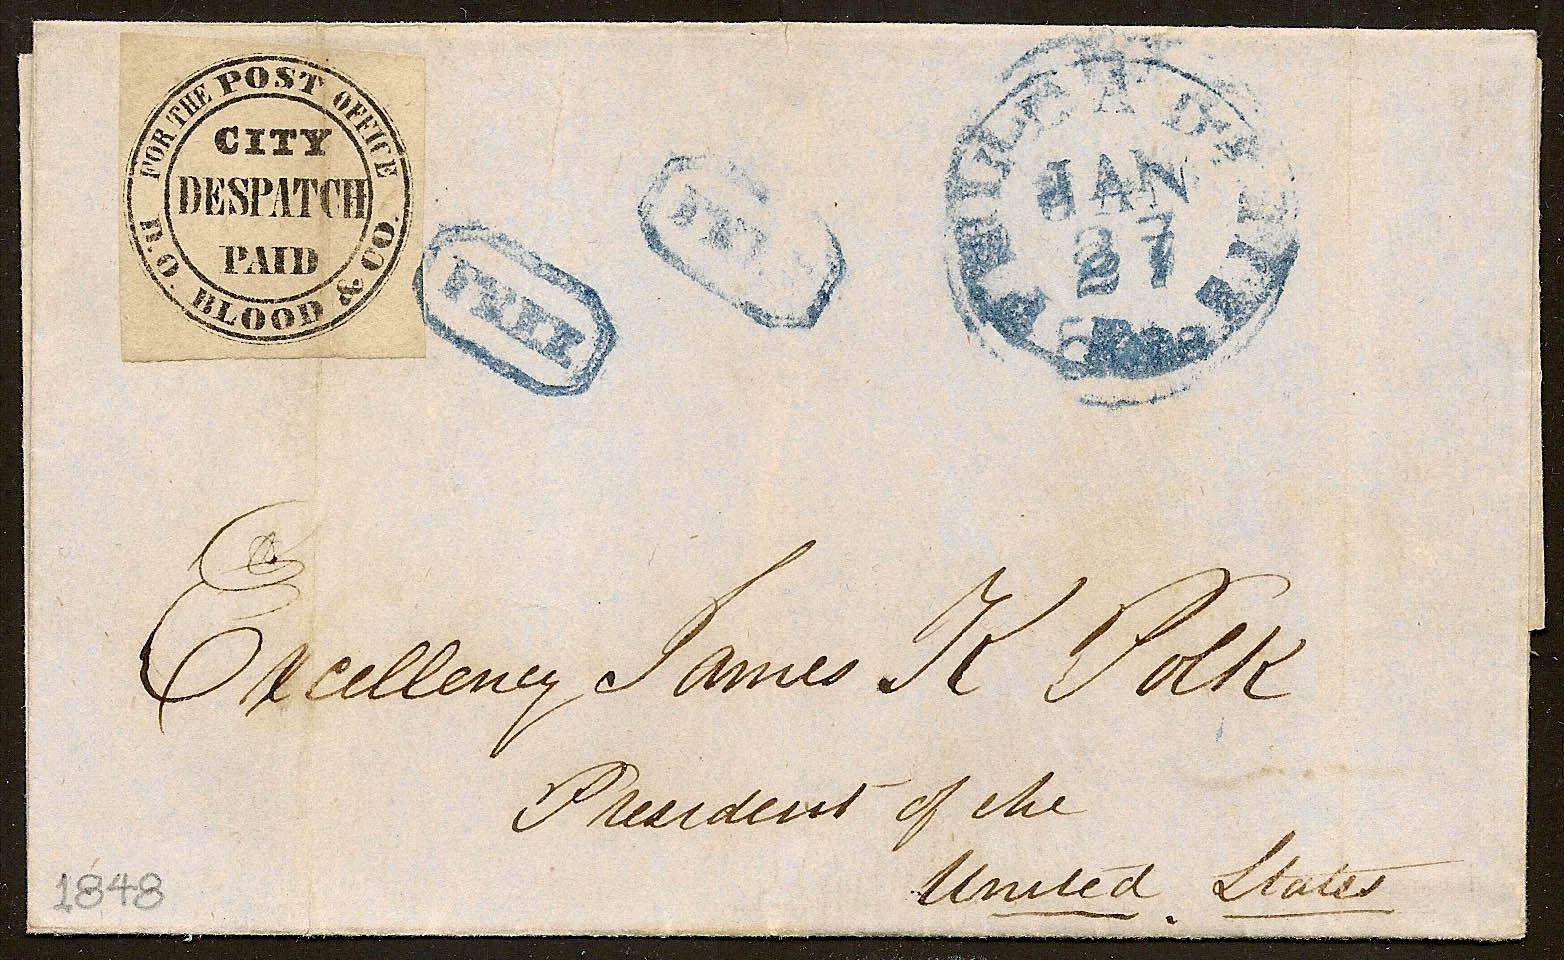 FOR THE POST OFFICE
CITY
DESPATCH
PAID
D.O. BLOOD & CO.
FREE
FREE
PHILADA
JAN
27
Excellency James K Polk
President of the
United States
1848